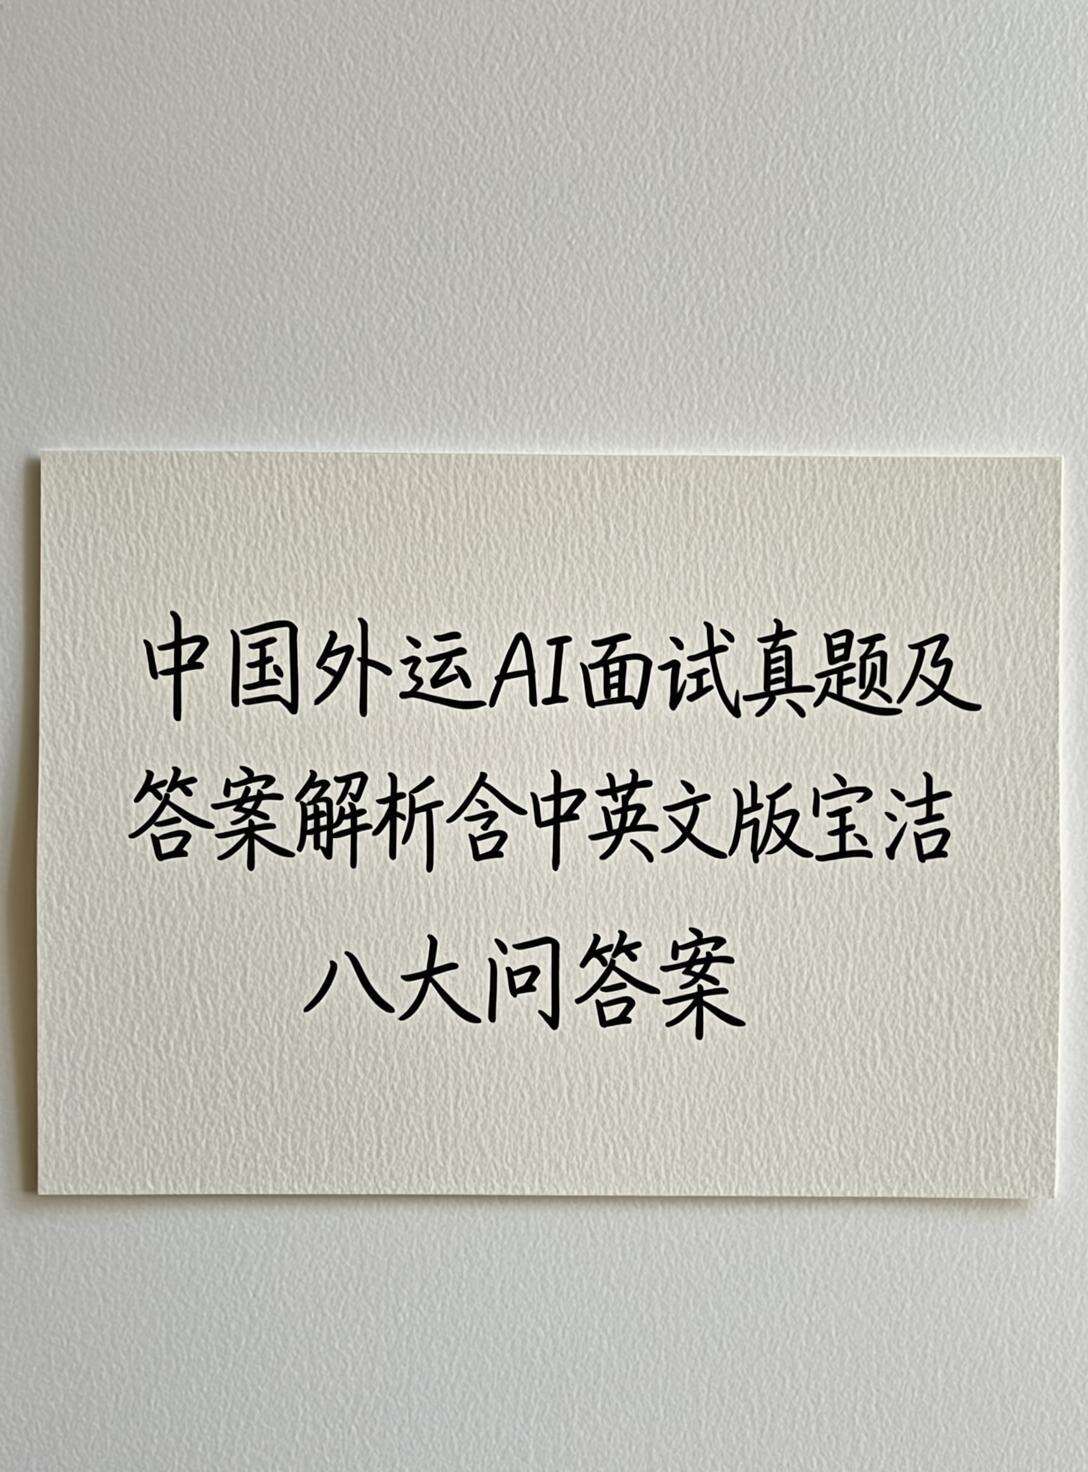 中国外运AI面试真题及
答案解析含中英文版宝洁
八大问答案